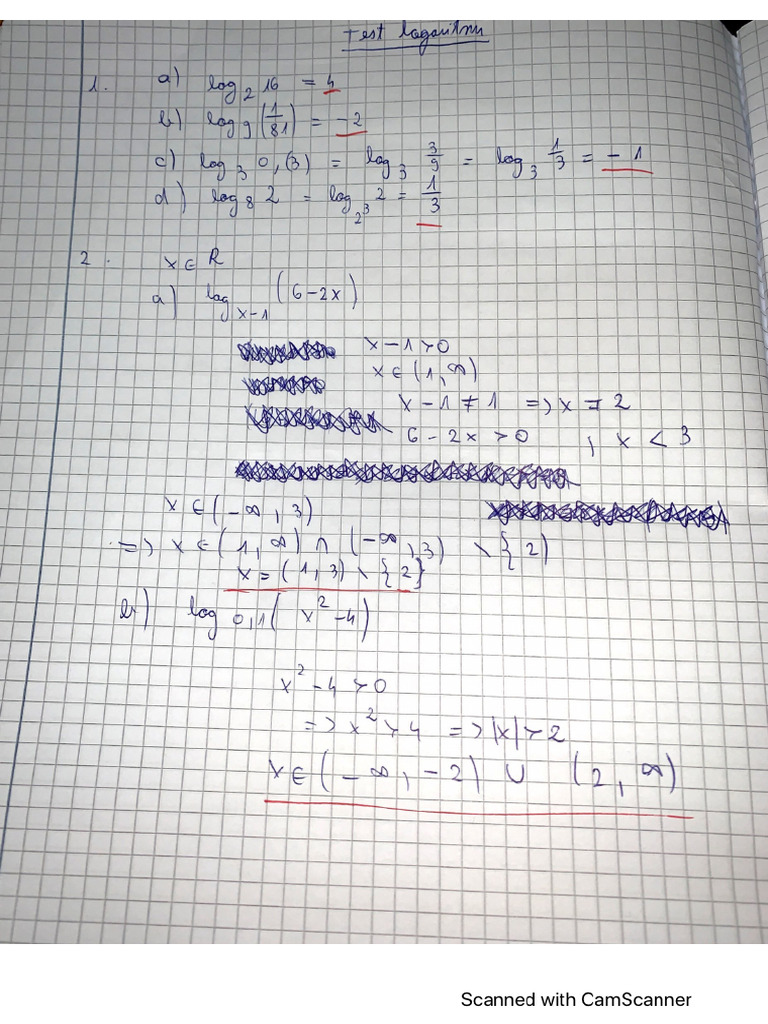 Test logaritmi
1. a) log₂ 16 = 4
b) log₉ (1/81) = -2
c) log₃ 0,(3) = log₃ 3/9 = log₃ 1/3 = -1
d) log₈ 2 = log₂³ 2 = 1/3
2. x ∈ R
a) log x-1 (6-2x)
x-1 > 0
x ∈ (1, ∞)
x-1 ≠ 1 => x ≠ 2
6-2x > 0 , x < 3
x ∈ (-∞, 3)
=> x ∈ (1, ∞) ∩ (-∞, 3) \ {2)
x = (1, 3) \ {2}
b) log 0,1 (x²-4)
x²-4 > 0
=> x² > 4 => |x| > 2
x ∈ (-∞, -2) ∪ (2, ∞)
Scanned with CamScanner